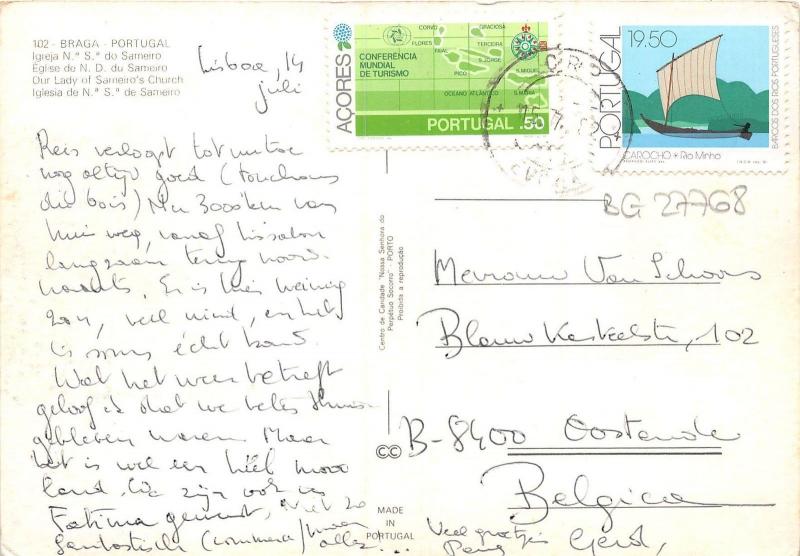 102 - BRAGA - PORTUGAL
Igreja N.ª S.ª do Sameiro
Église de N. D. du Sameiro
Our Lady of Sameiro's Church
Iglesia de N.ª S.ª de Sameiro
Lisboa, 14
juli
AÇORES
CONFERÊNCIA
MUNDIAL
DE TURISMO
CORVO
FLORES
FAIAL
GRACIOSA
TERCEIRA
S. JORGE
PICO
S. MIGUEL
OCEANO ATLÂNTICO
S. MARIA
PORTUGAL .50
PORTUGAL
19.50
BARCOS DOS RIOS PORTUGUESES
CAROCHO * Rio Minho
BG 27768
Reis verloopt tot nu toe
nog altijd goed (touchons
du bois) Na 3000 km van
huis weg, vanaf Lissabon
langzaam terug noord-
waarts. Er is hier weinig
zon, veel wind, en het
is soms écht koud.
Wat het weer betreft
geloof ik dat we beter thuis
gebleven waren. Maar
het is wel een héél mooi
land. We zijn ook in
Fatima geweest, niet zo
fantastisch (commerce) maar
allez...
Centro de Caridade "Nossa Senhora do
Perpétuo Socorro" - PORTO
Proibida a reprodução
CC
MADE IN
PORTUGAL
Mevrouw Van Schoors
Blauw Kasteelstr, 102
B-8400 Oostende
Belgica
Veel groetjes
Gerd,